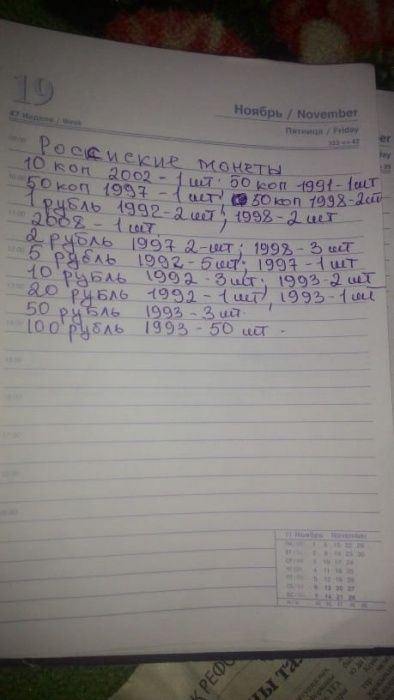 19
47 Неделя / Week
Ноябрь / November
Пятница / Friday
323 из 42
Россииские монеты
10 коп 2002 - 1 шт. 50 коп 1991 - 1 шт
50 коп 1997 - 1 шт, 50 коп 1998 - 2 шт
1 рубль 1992 - 2 шт, 1998 - 2 шт
2008 - 1 шт.
2 рубль 1997 2 - шт; 1998 - 3 шт
5 рубль 1992 - 5 шт; 1997 - 1 шт
10 рубль 1992 - 3 шт; 1993 - 2 шт
20 рубль 1992 - 1 шт, 1993 - 1 шт
50 рубль 1993 - 3 шт.
100 рубль 1993 - 50 шт.
11 Ноябрь - November